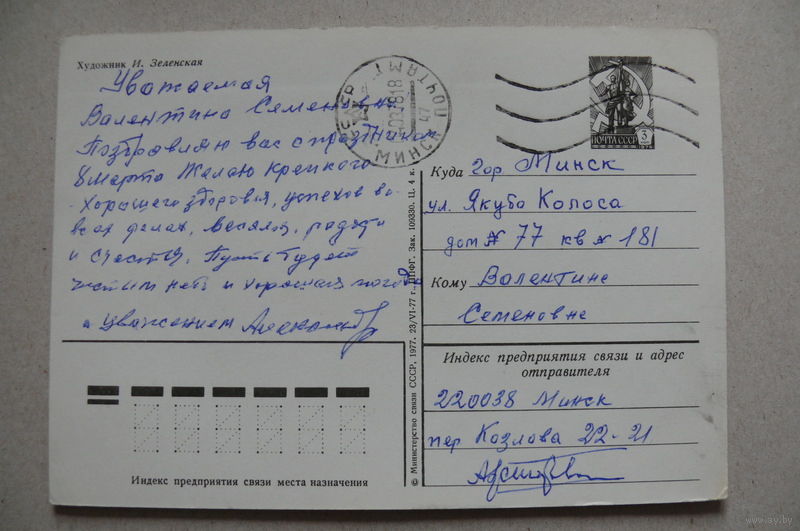 Художник И. Зеленская
Уважаемая
Валентина Семеновна
Поздравляю вас с праздником
8 марта Желаю крепкого
хорошего здоровья, успехов во
всех делах, веселья, радости
и счастья. Пусть будет
чистым небо и хорошая погода
с уважением
МИНСК
ПОЧТАМТ
ПОЧТА СССР
3
1976
Куда гор. Минск
ул. Якуба Коласа
дом № 77 кв № 181
Кому Валентине
Семеновне
Индекс предприятия связи и адрес
отправителя
220038 Минск
пер Козлова 22-21
© Министерство связи СССР, 1977. 23/VI-77 г. ППФГ. Зак. 109330. Ц. 4 к.
Индекс предприятия связи места назначения
www.ay.by